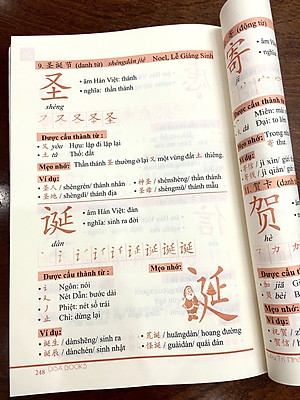 9. 圣诞节 (danh từ) shèngdàn jié Noel, Lễ Giáng Sinh
圣
• âm Hán Việt: thánh
• nghĩa: thần thánh
shèng
Được cấu thành từ :
又 yòu Hựu: lặp đi lặp lại
土 tǔ Thổ: đất
Mẹo nhớ: Thần thánh 圣 thường ở lại 又 một vùng đất 土 thiêng.
Ví dụ:
• 圣人 / shèngrén/ thánh nhân
• 神圣 / shénshèng/ thần thánh
• 圣地 / shèngdì/ thánh địa
• 圣母 / shèngmǔ/ thánh mẫu
诞
• âm Hán Việt: đản
• nghĩa: sinh ra đời
dàn
Được cấu thành từ :
Mẹo nhớ:
讠 Ngôn: nói
廴 Nét Dẫn: bước dài
丿 Phiệt: nét sổ trái
止 Chỉ: dừng lại
诞
Ví dụ:
• 诞生 / dànshēng/ sinh ra
• 荒诞 / huāngdàn/ hoang đường
• 诞辰 / dànchén/ sinh nhật
• 怪诞 / guàidàn/ quái đản
248
DISA BOOKS
(động từ)
寄
• âm Hán
• nghĩa:
jì
Được cấu thành
Miên: mái
Đại: to lớn
Mẹo nhớ: Trong
寄 thư.
Ví dụ:
11. 贺卡 (danh
贺
hè
Được cấu
Ví dụ: